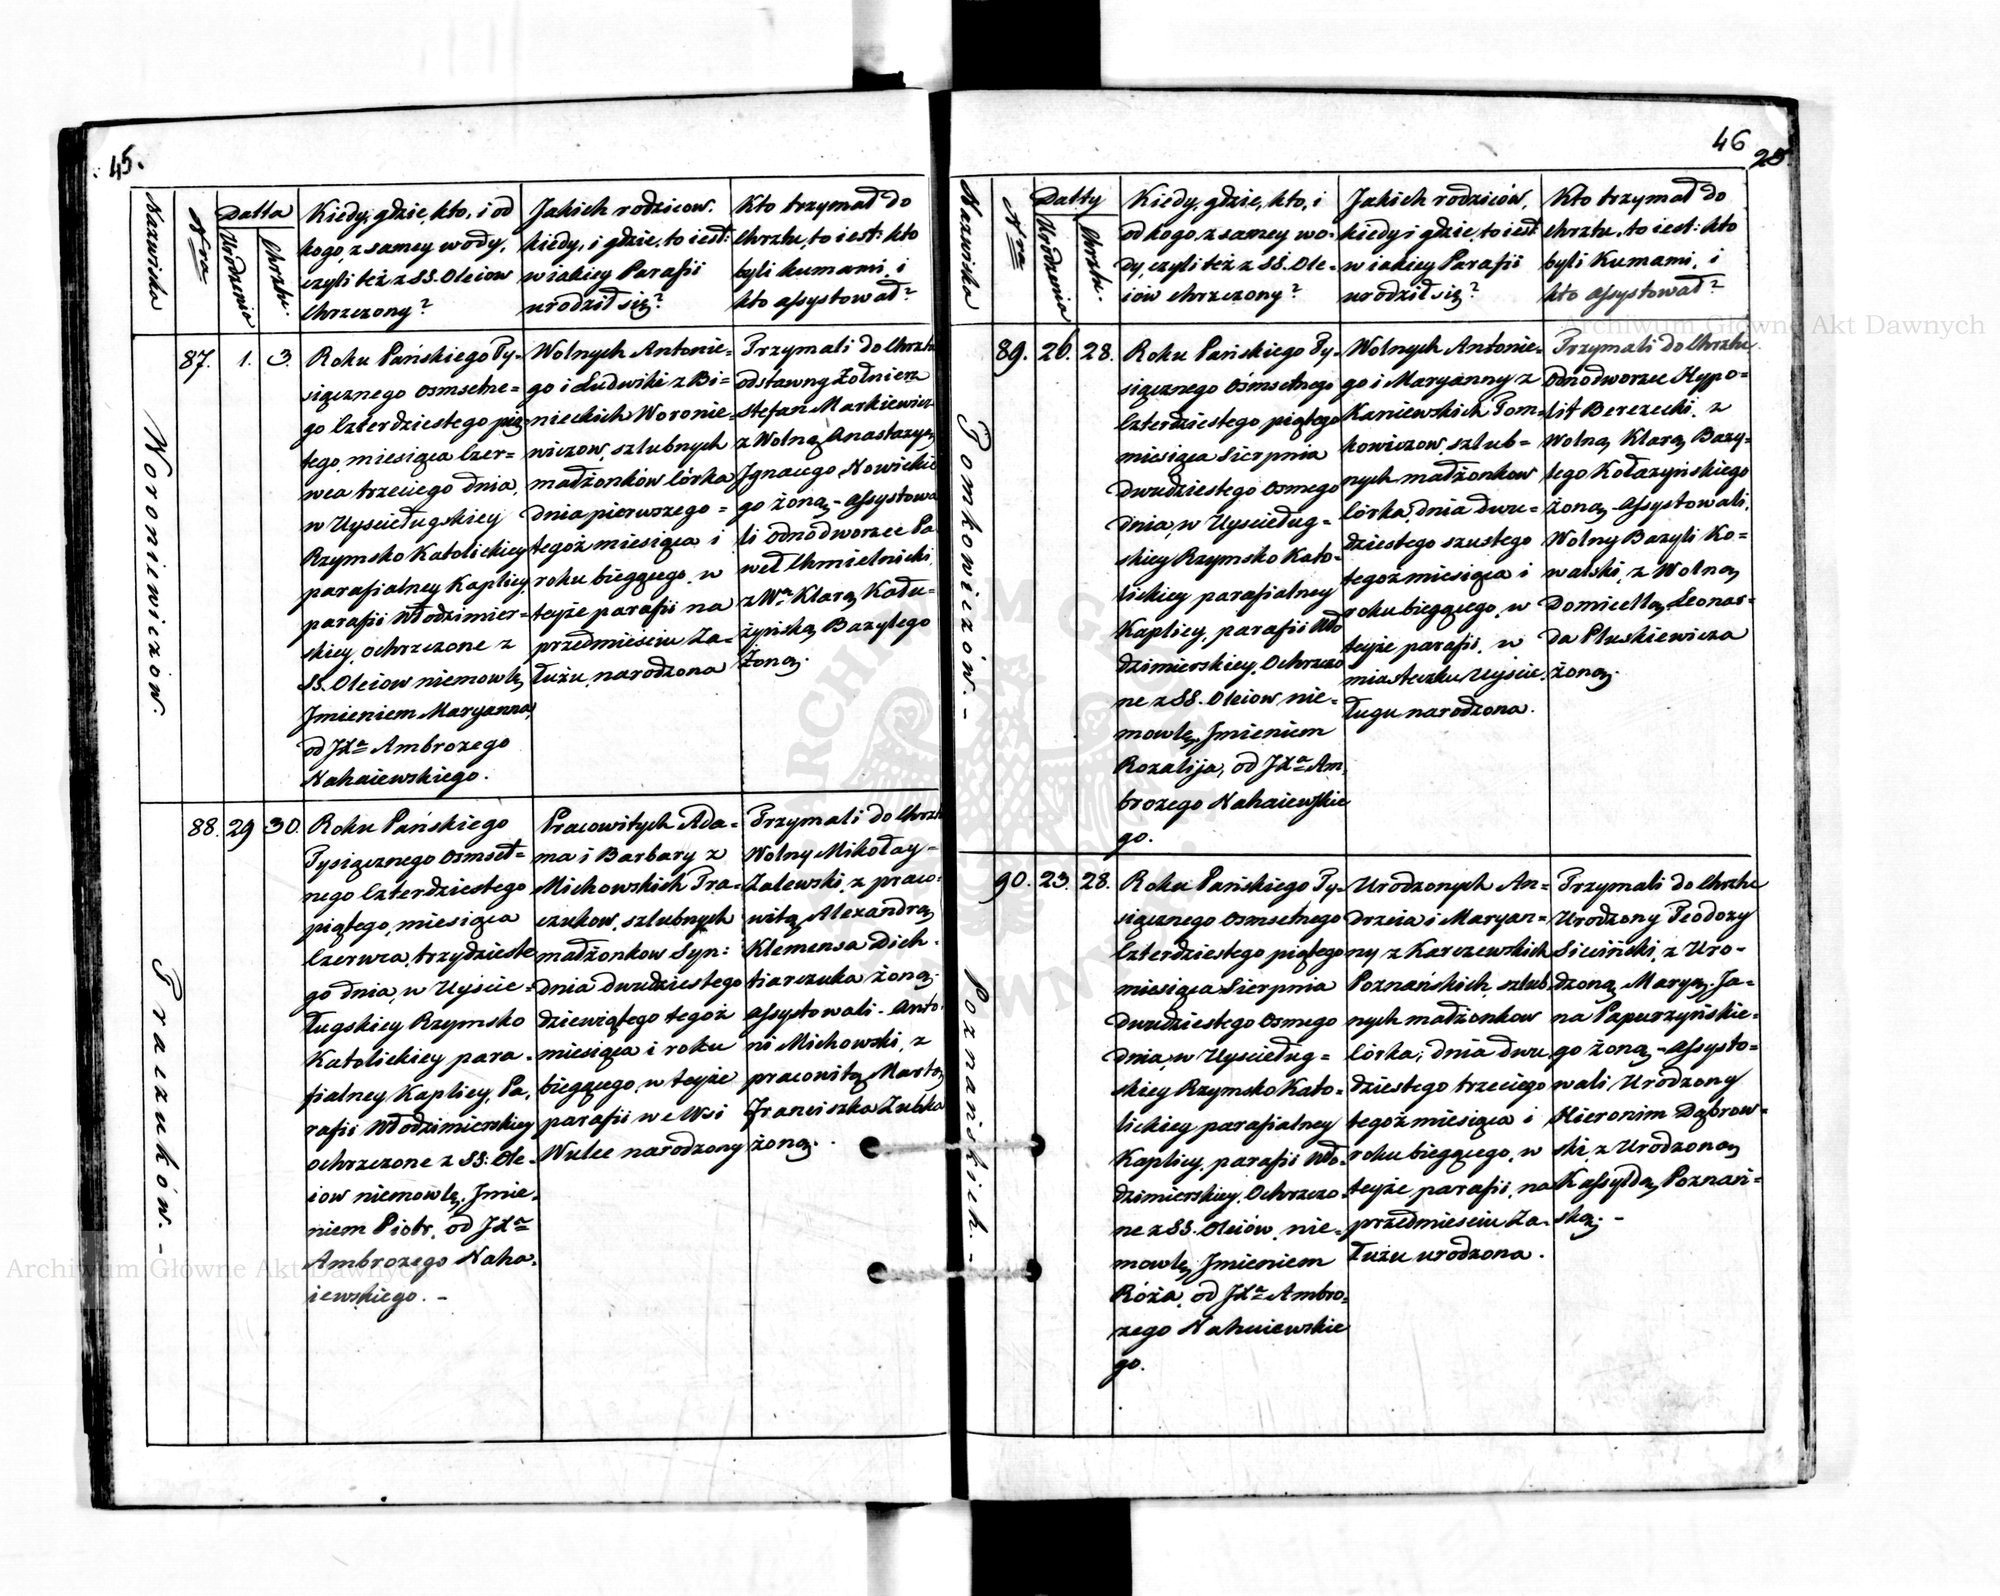 45.
Nazwiska
Nra
Datta
Urodzenia
Chrztu.
Kiedy, gdzie, kto, i od
kogo, z samey wody,
czyli też z SS. Oleiow
Chrzczony?
Jakich rodzicow.
kiedy, i gdzie, to iest:
w iakiey Parafii
urodził się?
Kto trzymał do
Chrztu, to iest: kto
byli kumami, i
kto assystował?
Woroniewiczow.
87.
1.
3.
Roku Pańskiego Ty-
siącznego Osmsetne=
go Czterdziestego pią
tego, miesiąca Czer=
wca trzeciego dnia,
w Uyścieługskiey
Rzymsko Katolickiey
parafialney Kaplicy,
parafii Włodzimier-
skiey, ochrzczone z
SS. Oleiow niemowlę,
Jmieniem Maryanna,
od JXa Ambrozego
Nahaiewskiego.
Wolnych Antonie=
go i Ludwiki z Bi=
nieckich Woronie=
wiczow, szlubnych
małżonków Córka
dnia pierwszego =
tegoż miesiąca i
roku bieggcego, w
teyże parafii na
przedmieściu Za=
łużu, narodzona
Trzymali do Chrztu
odstawny Żołnierz
Stefan Markiewicz
z Wolną Anastazyą,
Jgnacego Nowickie
go żoną - assystowa
li odnodworzec Pa
weł Chmielnicki,
z Wną Klarą Kału=
żyńską Bazylego
Żoną.
Praczuków. -
88.
29
30.
Roku Pańskiego
Tysiącznego Osmset=
nego Czterdziestego
piątego, miesiąca
Czerwca, trzydzieste
go dnia, w Uyście=
ługskiey Rzymsko
Katolickiey para-
fialney Kaplicy, Pa,
rafii Włodzimierskiey
ochrzczone z SS. Ole-
iow niemowlę, Jmie-
niem Piotr, od JXa
Ambrozego Naha-
iewskiego. -
Pracowitych Ada=
ma i Barbary z
Michowskich Pra-
czukow, szlubnych
małżonkow Syn:
dnia dwudziestego
dziewiątego tegoż
miesiąca i roku
bieggcego, w teyże
parafii we Wsi
Wulce narodzony
Trzymali do Chrztu
Wolny Mikołay =
Zalewski, z praco-
witą Alexandrą
Klemensa Dich-
tiarczuka żoną;
assystowali - Anto-
ni Michowski, z
pracowitą Martą
Franciszka Zubka
żoną.
46
25
Nazwiska
Nra
Datty
Urodzenia
Chrztu.
Kiedy, gdzie, kto, i
od kogo, z samey wo-
dy, czyli też z SS. Ole-
iów chrzczony?
Jakich rodziców,
kiedy i gdzie, to iest
w iakiey Parafii
urodził się?
Kto trzymał do
chrztu, to iest: kto
byli Kumami, i
kto assystował?
Tomkowiczów. -
89.
26.
28.
Roku Pańskiego Ty-
siącznego Ośmsetnego
Czterdziestego piątego
miesiąca Sierpnia
Dwudziestego Osmego
dnia, w Uyścieług=
skiey Rzymsko Kato-
lickiey parafialney
Kaplicy, parafii Wło
dzimierskiey, Ochrzczo
ne z SS. Oleiow nie-
mowlę, Jmieniem
Rozalija, od JXa Am,
brozego Nahaiewskie
go.
Wolnych Antonie-
go i Maryanny z
Kaniewskich Tom-
kowiczow, szlub=
nych małżonkow
Córka, dnia dwu-
dziestego szustego
tegoż miesiąca i
roku bieggcego, w
teyże parafii, w
miasteczku Uyście,
ługu narodzona.
Trzymali do Chrztu
Odnodworzec Hypo=
lit Berezecki, z
Wolną Klarą Bazy-
lego Kołazyńskiego
żoną - Assystowali,
Wolny Bazyli Ko=
walski, z Wolną
Domicellą Leonar-
da Pluskiewicza
żoną.
Poznańskich. -
90.
23.
28.
Roku Pańskiego Ty-
siącznego Osmsetnego
Czterdziestego piątego
miesiąca Sierpnia
Dwudziestego Osmego
dnia, w Uyścieług=
skiey Rzymsko Kato-
lickiey parafialney
Kaplicy, parafii Wło-
dzimierskiey, Ochrzczo-
ne z SS. Oleiów, nie-
mowlę, Jmieniem
Róża, od JXa Ambro-
zego Nahaiewskie
go.
Urodzonych An=
drzeia i Maryan=
ny z Karczewskich
Poznańskich, szlub
nych małżonkow
Córka, dnia dwu
dziestego trzeciego
tegoż miesiąca i
roku bieggcego, w
teyże parafii, na
przedmieściu Za-
łużu urodzona.
Trzymali do Chrztu
Urodzony Teodozy
Siciński, z Uro-
dzoną Maryą, Ja-
na Papurzyńskie-
go żoną - Assysto-
wali Urodzony
Hieronim Dąbrow-
ski, z Urodzoną
Kassyldą Poznań-
ską. -
Archiwum Główne Akt Dawnych
Archiwum Główne Akt Dawnych